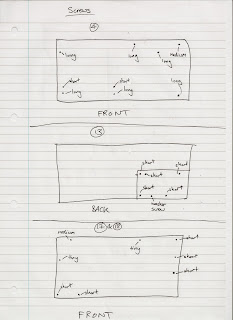 Screws
4
long
long
medium
long
short
short
long
long
long
FRONT
13
short
short
short
short
short
screw
BACK
medium
long
long
short
short
short
short
short
FRONT